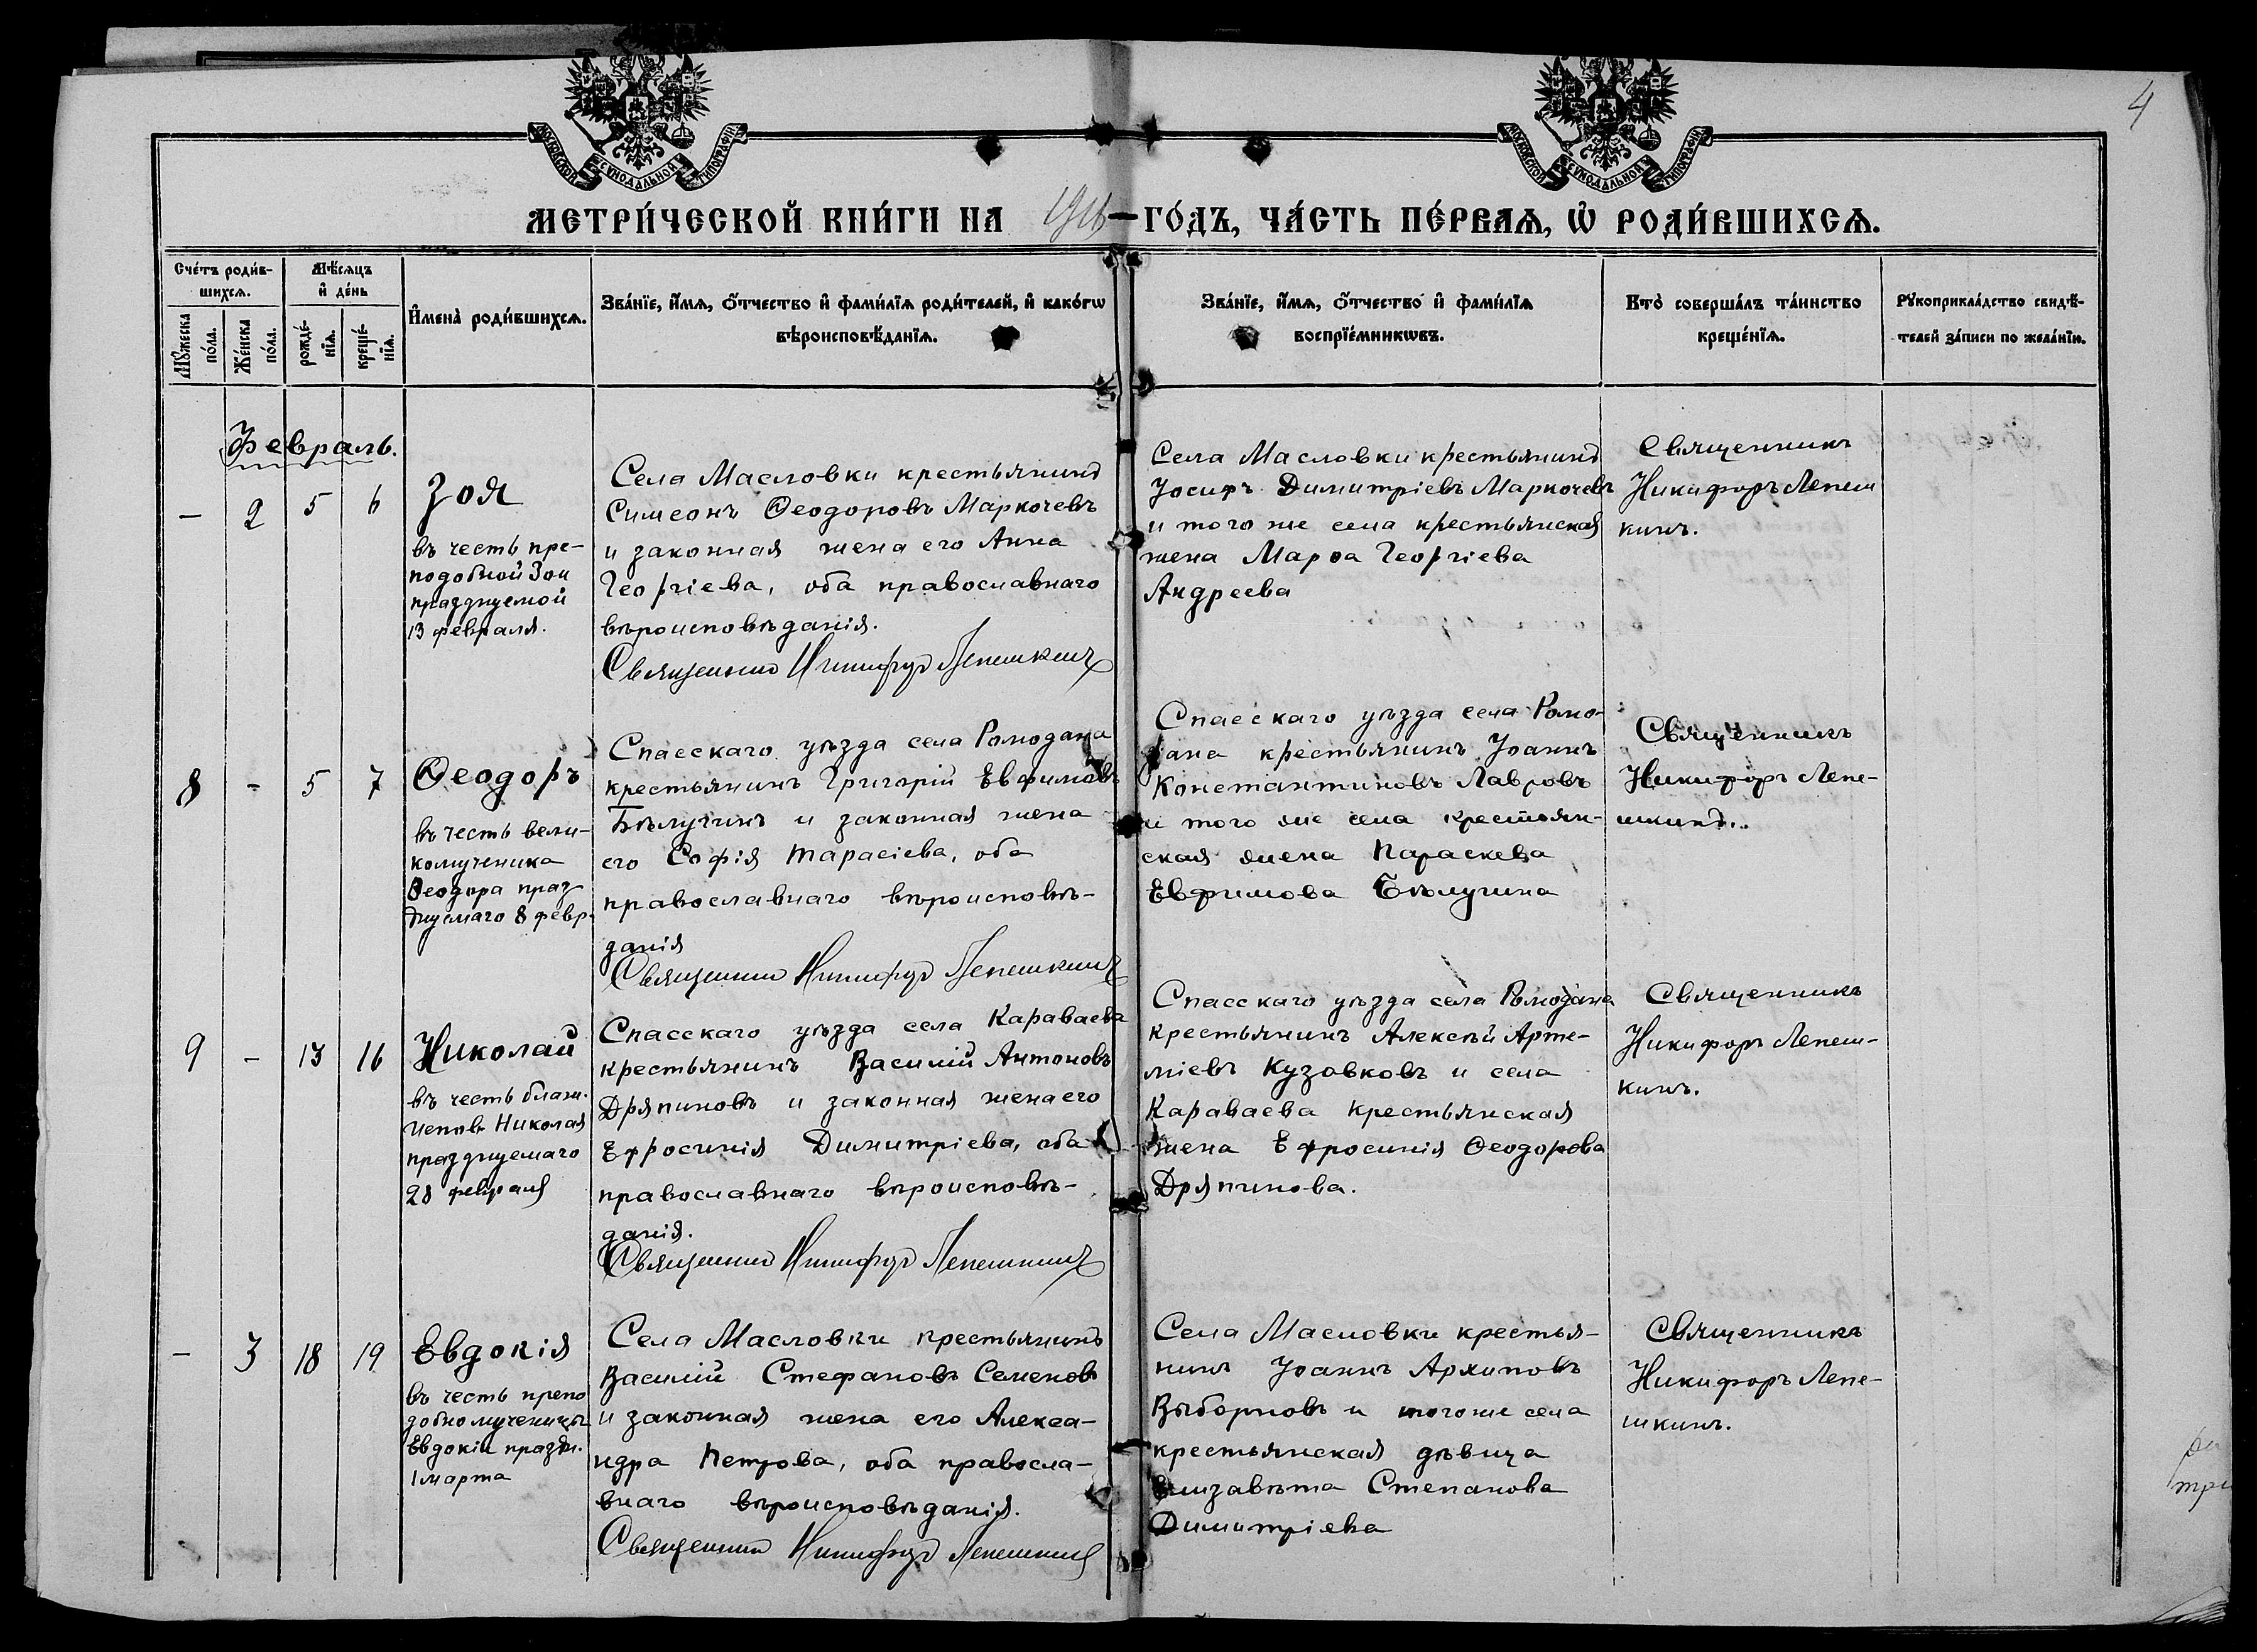 4
МОСКОВСКОЙ СѴНОДАЛЬНОЙ ТИПОГРАФІИ
МОСКОВСКОЙ СѴНОДАЛЬНОЙ ТИПОГРАФІИ
МЕТРИ́ЧЕСКОЙ КНИ́ГИ НА ГО́ДЪ, ЧА́СТЬ ПЕ́РВАѦ, Ѡ҆ РОДИ́ВШИХСѦ.
Сче́тъ роди́в-
шихсѧ.
Мꙋ́жеска
по́ла.
Же́нска
по́ла.
Мѣ́сѧцъ
и҆ де́нь
рожде́-
нїѧ.
креще́-
нїѧ.
И҆мена̀ роди́вшихсѧ.
Зва́нїе, и҆́мѧ, ѻ҆́тчество и҆ фами́лїѧ роди́телей, и҆ како́гѡ
вѣроисповѣ́данїѧ.
Зва́нїе, и҆́мѧ, ѻ҆́тчество и҆ фами́лїѧ
воспрїе́мникѡвъ.
Кто̀ соверша́лъ та́инство
креще́нїѧ.
Рꙋкоприкла́дство свидѣ́-
телей за́писи по жела́нїю.
Февраль.
-
2
5
6
Зоя
въ честь пре-
подобной Зои
празднуемой
13 февраля.
Села Масловки крестьянинъ
Симеонъ Ѳеодоровъ Маркочевъ
и законная жена его Анна
Георгіева, оба православнаго
вѣроисповѣданія.
Священникъ Никифоръ Лепешкинъ
Села Масловки крестьянинъ
Іосифъ Димитріевъ Маркочевъ
и того же села крестьянская
жена Марѳа Георгіева
Андреева
Священникъ
Никифоръ Лепеш
кинъ.
8
-
5
7
Ѳеодоръ
въ честь вели-
комученика
Ѳеодора праз-
днуемаго 8 февр.
Спасскаго уѣзда села Ромодана
крестьянинъ Григорій Евфимовъ
Бѣлугинъ и законная жена
его Софія Тарасіева, оба
православнаго вѣроисповѣ-
данія
Священникъ Никифоръ Лепешкинъ
Спасскаго уѣзда села Ромо-
дана крестьянинъ Іоаннъ
Константиновъ Лавровъ
и того же села крестьян-
ская жена Параскева
Евфимова Бѣлугина
Священникъ
Никифоръ Лепе-
шкинъ.
9
-
13
16
Николай
въ честь блаж.
испов. Николая
празднуемаго
28 февраля
Спасскаго уѣзда села Караваева
крестьянинъ Василій Антоновъ
Дряпиновъ и законная жена его
Ефросинія Димитріева, оба
православнаго вѣроисповѣ-
данія.
Священникъ Никифоръ Лепешкинъ
Спасскаго уѣзда села Ромодана
крестьянинъ Алексѣй Арте-
міевъ Кузовковъ и села
Караваева крестьянская
жена Ефросинія Ѳеодорова
Дряпинова.
Священникъ
Никифоръ Лепеш-
кинъ.
-
3
18
19
Евдокія
въ честь препо
добномученицы
Евдокіи праздн.
1 марта
Села Масловки крестьянинъ
Василій Стефановъ Семеновъ
и законная жена его Алекса-
ндра Петрова, оба правосла-
внаго вѣроисповѣданія.
Священникъ Никифоръ Лепешкинъ
Села Масловки крестья-
нинъ Іоаннъ Архиповъ
Выборновъ и того же села
крестьянская дѣвица
Елизавета Степанова
Димитріева
Священникъ
Никифоръ Лепе-
шкинъ.